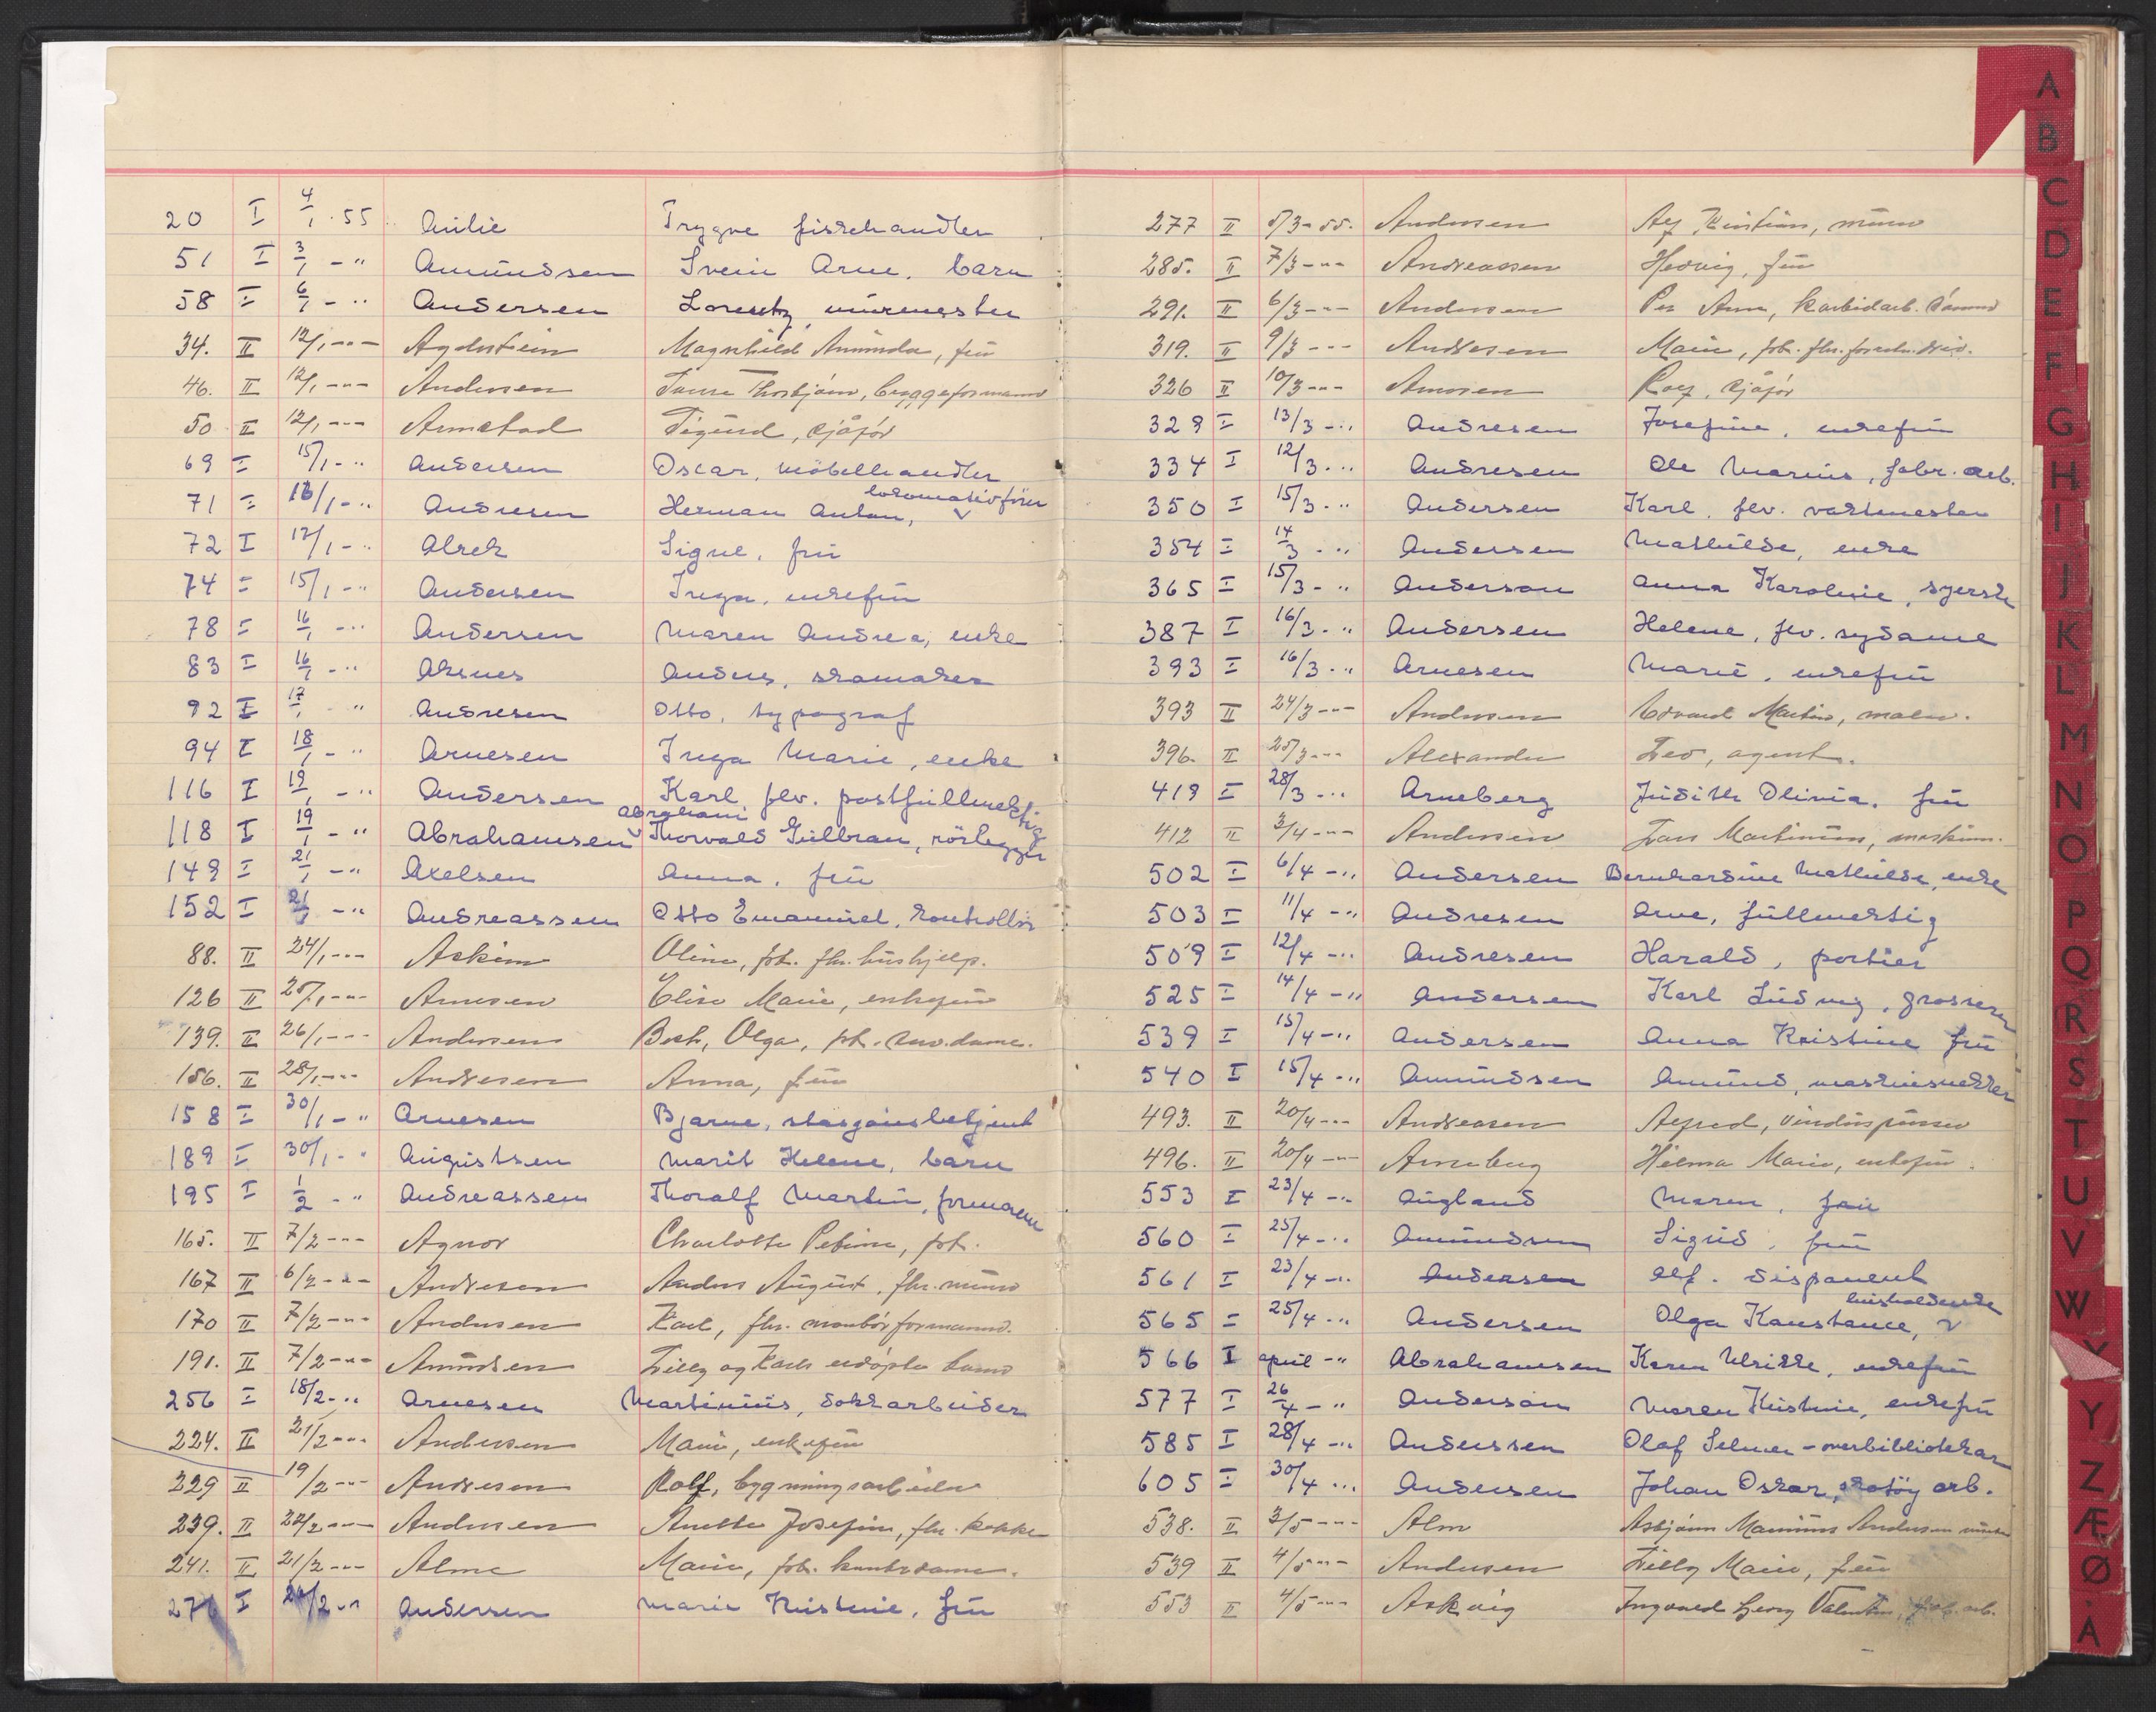 20 I 4/1 - 55 Aulie Trygve fiskehandler
51 I 3/1 - " Amundsen Svein Arne, barn
58 I 6/1 - " Andersen Lorentz, murmester
34. II 12/1 - " - Agdestein Magnhild Amanda, frü
46. II 12/1 - " - Andersen Thorbjørn, byggeformann
50 II 12/1 - " - Armstad Sigurd, sjåfør
69 I 15/1 - " Andersen Oscar, møbelhandler
71 I 16/1 - " Andresen Herman Anton, lokomotivfører
72 I 12/1 - " Alrek Signe, frü
74 I 15/1 - " Andersen Inga, enkefrü
78 I 16/1 - " Andersen Maren Andrea, enke
83 I 16/1 - " Aksnes Anders, skomaker
92 I 17/1 " Andresen Otto, typograf
94 I 18/1 - " Arnesen Inga Marie, enke
116 I 19/1 - " Andersen Karl, flv. postfüllmektig
118 I 19/1 - " Abrahamsen Abraham Thorvald Gulbran, rörlegger
149 I 21/1 - " Axelsen Anna, frü
152 I 21/1 - " Andreassen Otto Emanuel, kontrollør
88. II 24/1 - " - Askim Oline, frk. fhv. hushjelp.
126 II 25/1 - " - Arnesen Elise Marie, enkefrü
139. II 26/1 - " - Andersen Borh, Olga, frk.
156. II 28/1 - " - Andresen Anna, frü
158 I 30/1 - " Arnesen Bjarne, stasjonsbetjent
189 I 30/1 - " Augustsen Marit Helene, barn
195 I 1/2 - " Andreassen Thoralf Martin, formann
165. II 7/2 - " - Agnor Charlotte Petrine, frk.
167 II 6/2 - " - Andresen Anders August, fhv. murer
170 II 7/2 - " - Andersen Karl, fhv. montørformann.
191. II 7/2 - " - Amundsen Lilly og Karls udøpte barn
256 I 18/2 - " Arnesen Martinius, dokkarbeider
224. II 21/2 - " - Andersen Marie, enkefrü
229 II 19/2 - " - Andresen Rolf, bygningsarbeider
239. II 22/2 - " - Andersen Anette Josefine, fhv. kokke
241. II 21/2 - " - Alme Marie, frk. kontordame.
276 I 24/2 - " Andersen Marie Kristine, frü
277 II 5/3 - 55. Andersen Alf Kristian, murer
285. II 7/3 - " - Andreassen Hedvig, frü
291. II 6/3 - " - Andersen Per Arne, karbidarb.
319. II 9/3 - " - Andresen Marie, frk. fhv.
326 II 10/3 - " - Amosen Rolf, sjåfør
329 I 13/3 - " Andresen Josefine, enkefrü
334 I 12/3 - " Andresen Ole Marius, fabr. arb.
350 I 15/3 - " Andersen Karl, flv. vaktmester
354 I 14/3 - " Andersen Mathilde, enke
365 I 15/3 - " Anderson Anna Karoline, syerske
387 I 16/3 - " Andersen Helene, flv. sydame
393 I 16/3 - " Arnesen Marie, enkefrü
393 II 24/3 - " - Andersen Edvard Martin, maler.
396. II 25/3 - " - Alexander Leo, agent.
419 I 28/3 - " Arneberg Judith Olivia, frü
412 II 3/4 - " - Andersen Lars Martinius, maskinm.
502 I 6/4 - " Andersen Bernhardine Mathilde, enke
503 I 11/4 - " Andresen Arne, füllmektig
509 I 12/4 - " Andresen Harald, portier
525 I 14/4 - " Andersen Karl Ludvig, grosserer
539 I 15/4 - " Andersen Anna Kristine frü
540 I 15/4 - " Amundsen Amund, maskinsnekker
493. II 20/4 - " - Andreasen Alfred, vinduspusser
496. II 20/4 - " - Arneberg Hilma Marie, enkefrü.
553 I 23/4 - " Augland Maren, frü
560 I 25/4 - " Amundsen Sigrid, frü
561 I 23/4 - " Andersen Alf. disponent
565 I 25/4 - " Andersen Olga Konstance, husholderske
566 I april - " Abrahamsen Karen Ulrikke, enkefrü
577 I 26/4 - " Anderson Maren Kristine, enkefrü
585 I 28/4 - " Anderssen Olaf Selmer - overbibliotekar
605 I 30/4 - " Andersen Johan Oskar, skotøy arb.
538. II 3/5 - " - Alm Asbjørn Andersen
539 II 4/5 - " - Andersen Lilly Marie, frü
553 II 4/5 - " - Askvig Ingvald Georg Valentin,
A
B
C
D
E
F
G
H
I
J
K
L
M
N
O
P
Q
R
S
T
U
V
W
X
Y
Z
Æ
Ø
Å